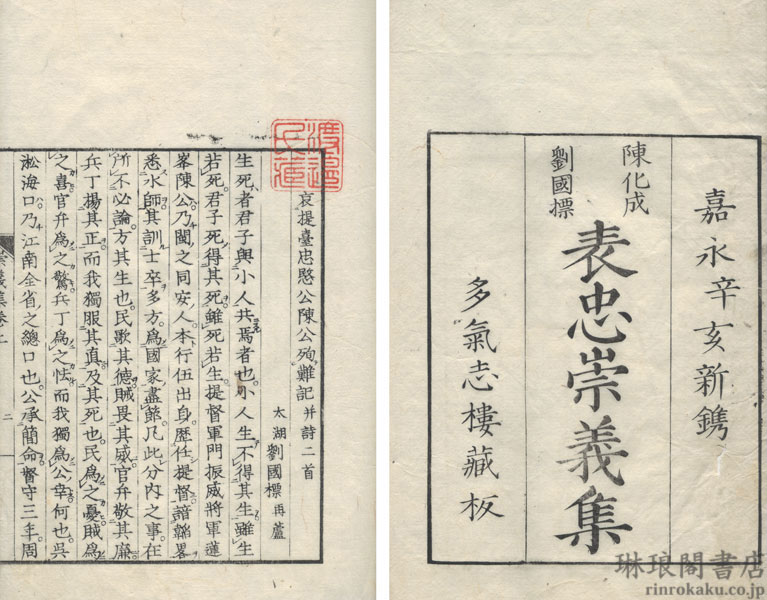 嘉永辛亥新鐫
陳化成
劉國標
表忠崇義集
多氣志樓藏板
琳琅閣書店
rinrokaku.co.jp
渡邉
氏藏
哀提臺忠愍公陳公殉難記 并詩二首
太湖劉國標再蘆
生死者君子與小人共焉者也小人生不得其生雖生
若死君子死得其死雖死若生提督軍門振威將軍蓮
峯陳公乃閩之同安人本行伍出身歷任提督諳韜畧
悉水師其訓士卒多方爲國家盡節凡此分內之事在
所不必論方其生也民歌其德賊畏其威官弁敬其廉
兵丁揚其正而我獨服其真及其死也民爲之憂賊爲
之喜官弁爲之驚兵丁爲之怯而我獨爲公幸何也吳
淞海口乃江南全省之總口也公承簡命督守三年周
崇義集卷上
二